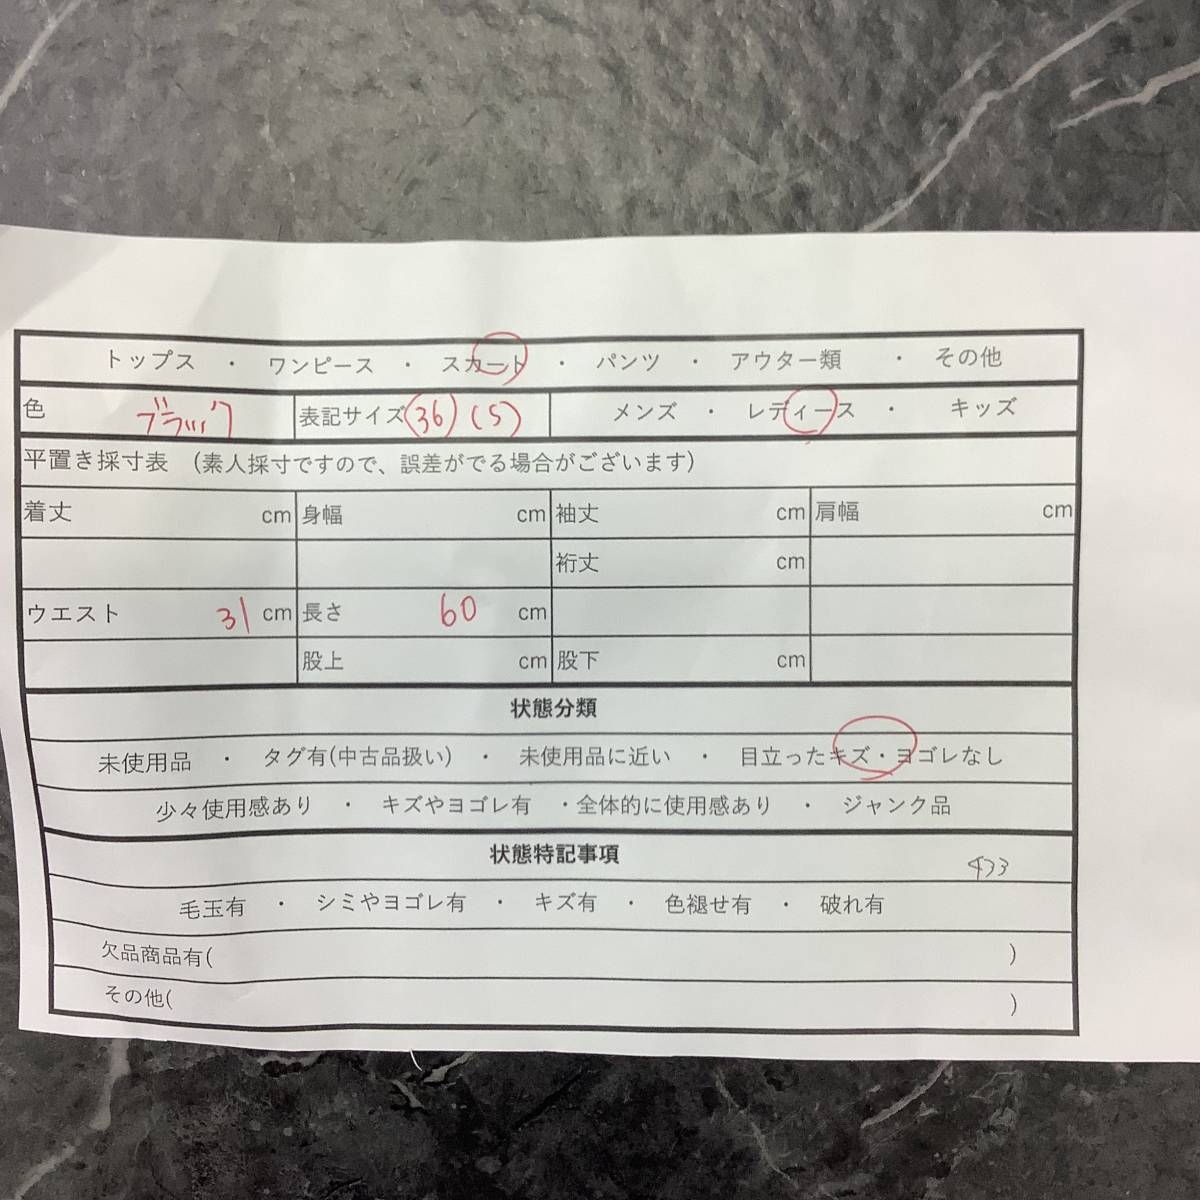 トップス ・ ワンピース ・ スカート ・ パンツ ・ アウター類 ・ その他
色 ブラック 表記サイズ (36) (S) メンズ ・ レディース ・ キッズ
平置き採寸表 (素人採寸ですので、誤差がでる場合がございます)
着丈 cm 身幅 cm 袖丈 cm 肩幅 cm
裄丈 cm
ウエスト 31 cm 長さ 60 cm
股上 cm 股下 cm
状態分類
未使用品 ・ タグ有(中古品扱い) ・ 未使用品に近い ・ 目立ったキズ・ヨゴレなし
少々使用感あり ・ キズやヨゴレ有 ・全体的に使用感あり ・ ジャンク品
状態特記事項 433
毛玉有 ・ シミやヨゴレ有 ・ キズ有 ・ 色褪せ有 ・ 破れ有
欠品商品有( )
その他( )